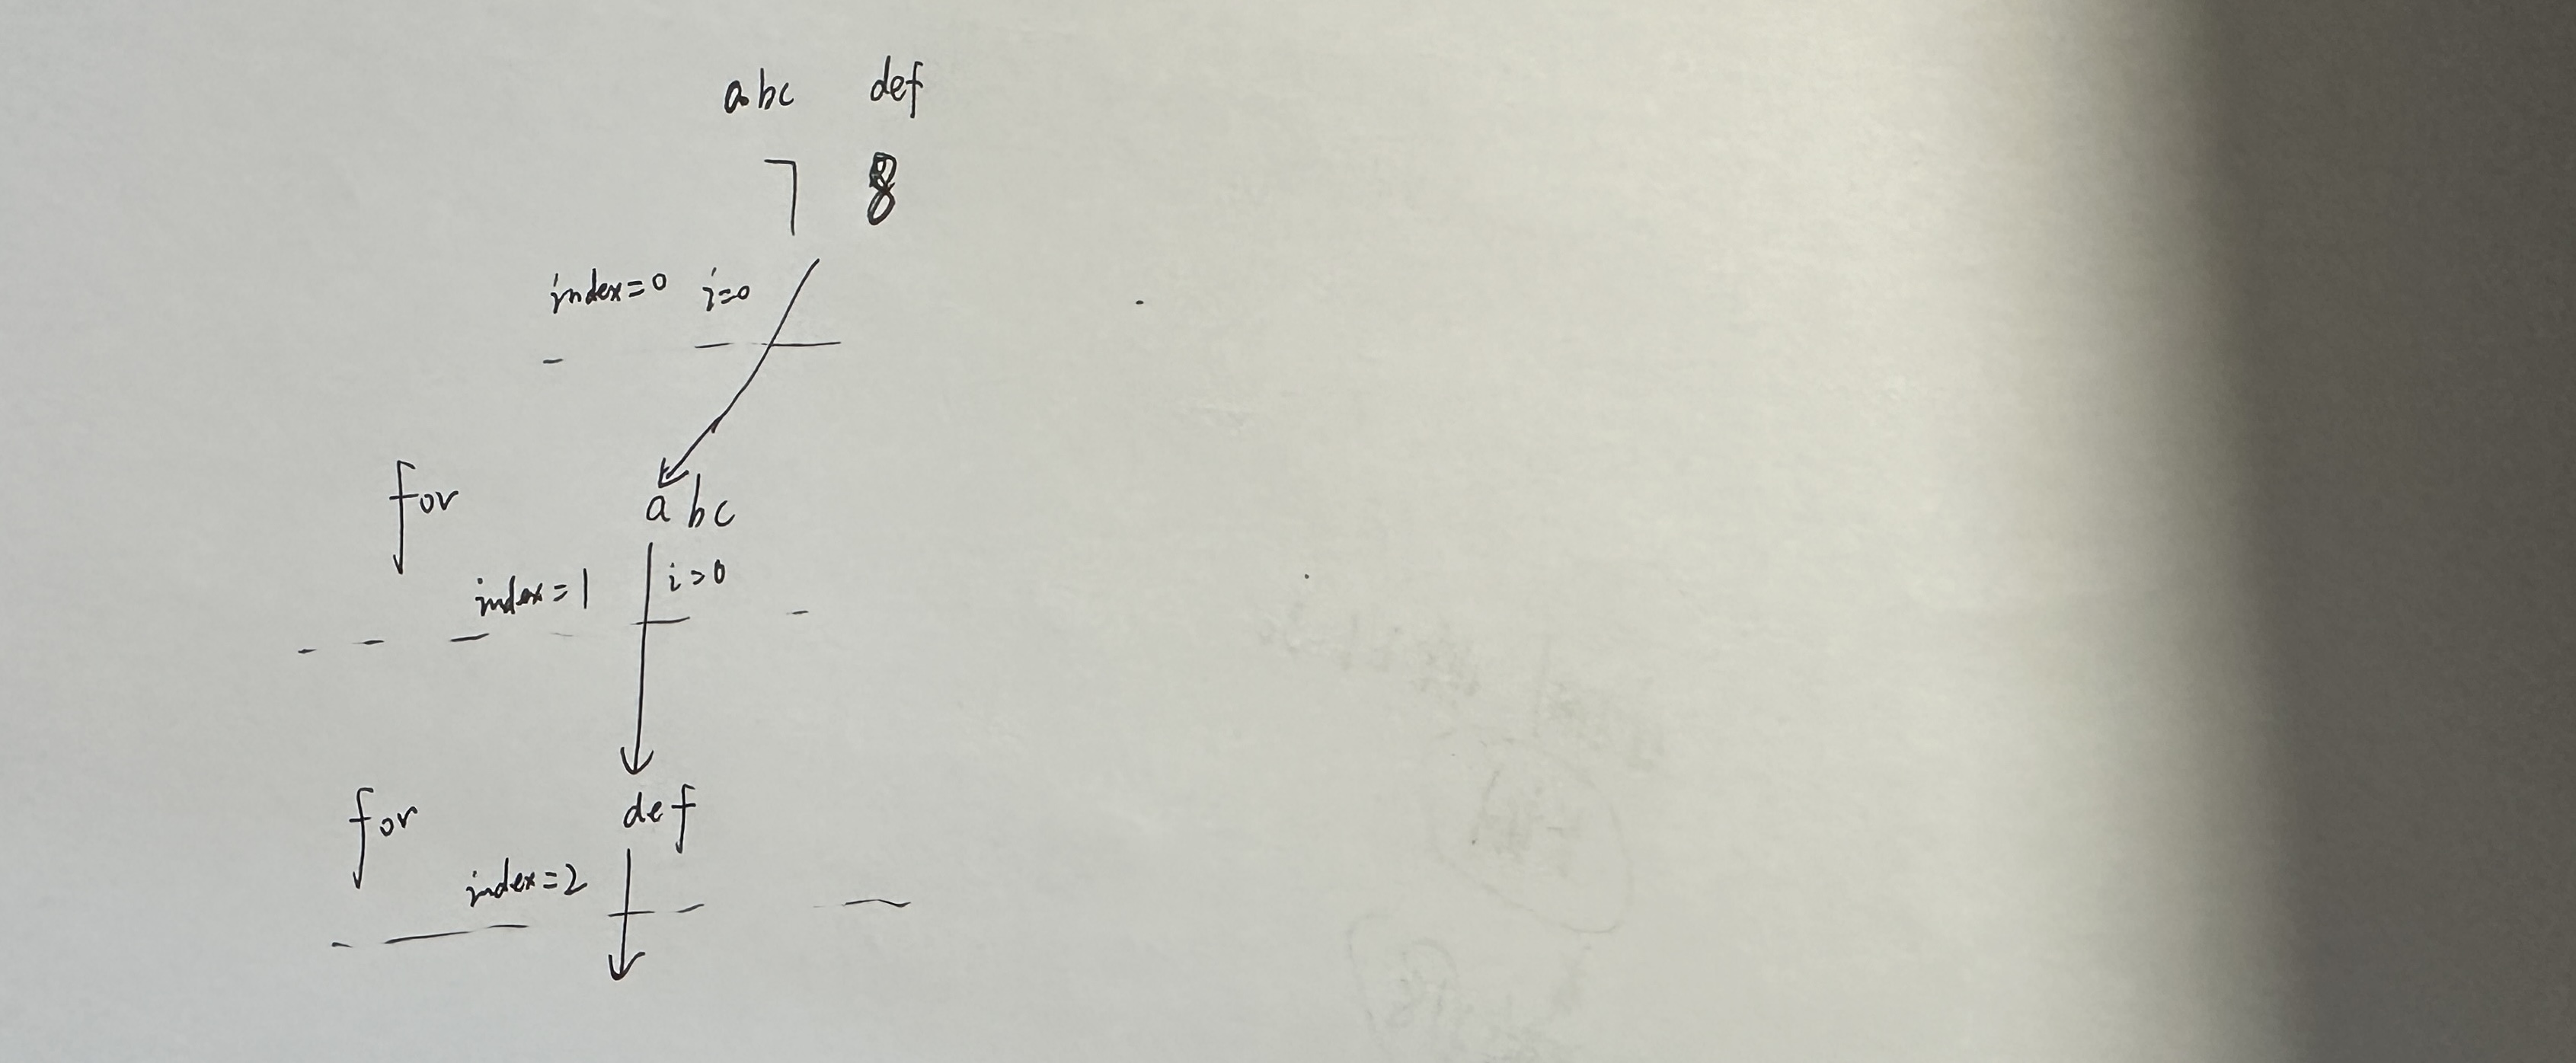 abc def
7 8
index=0 i=0
for
abc
index=1 i=0
for
def
index=2